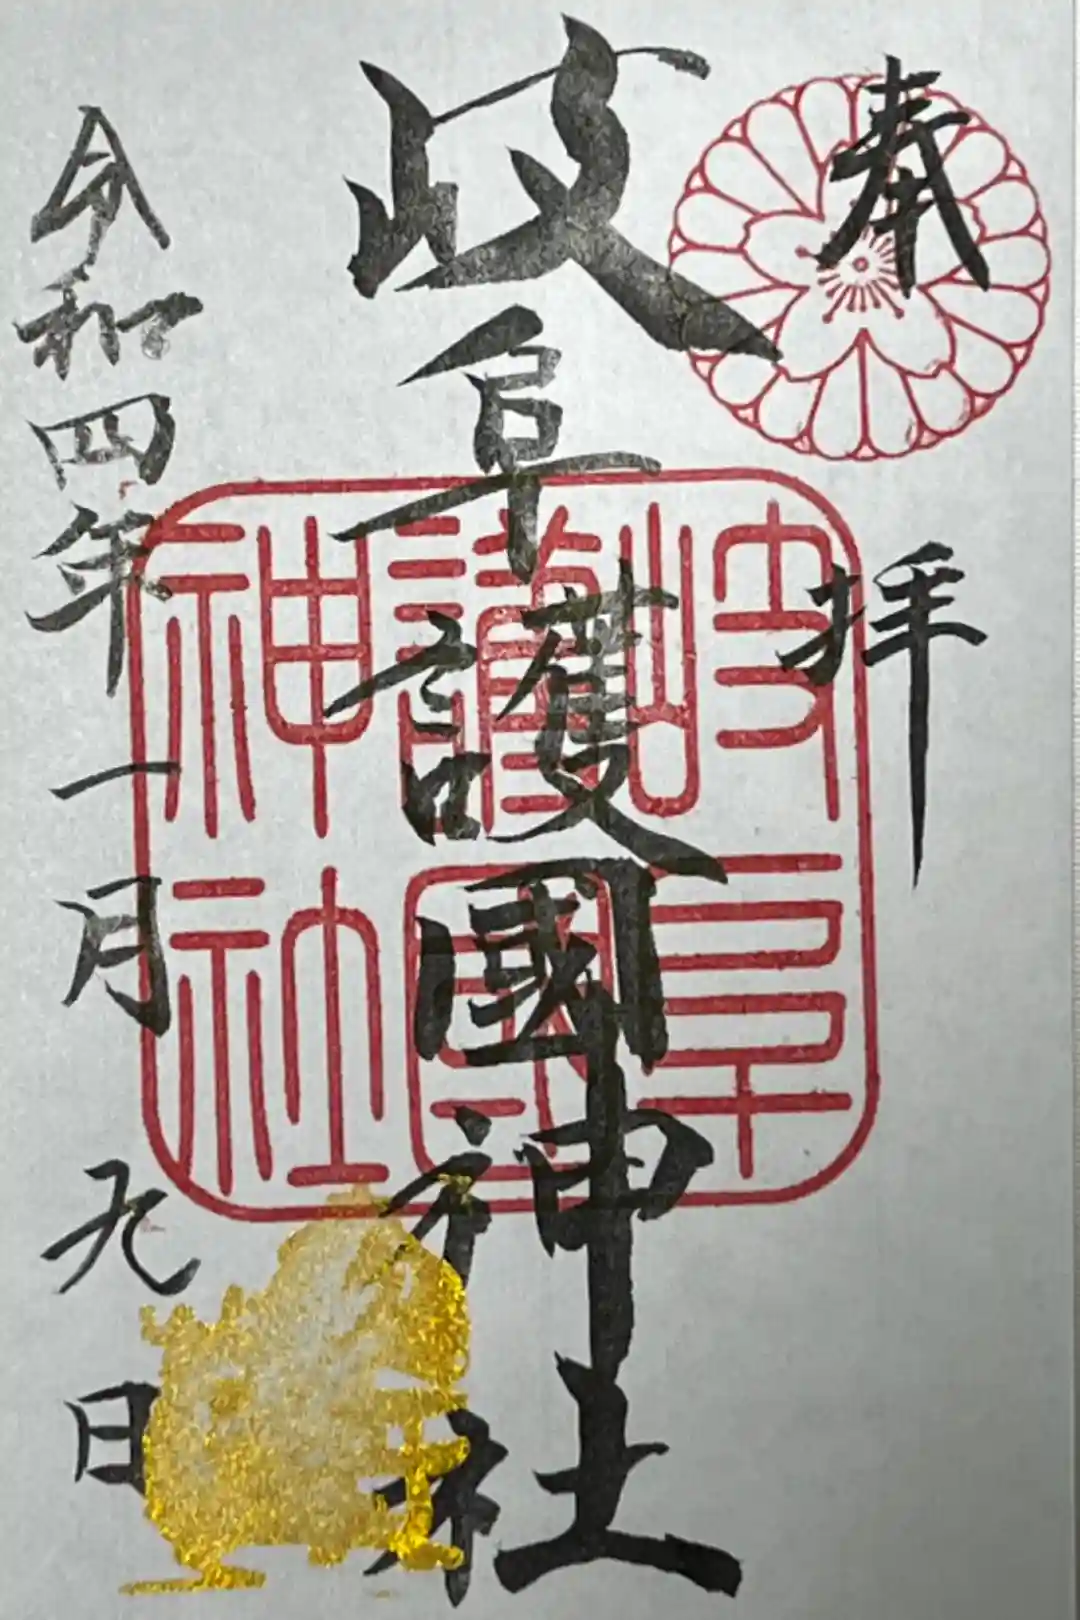 奉拝
岐阜護國神社
岐阜
護國
神社
令和四年一月九日